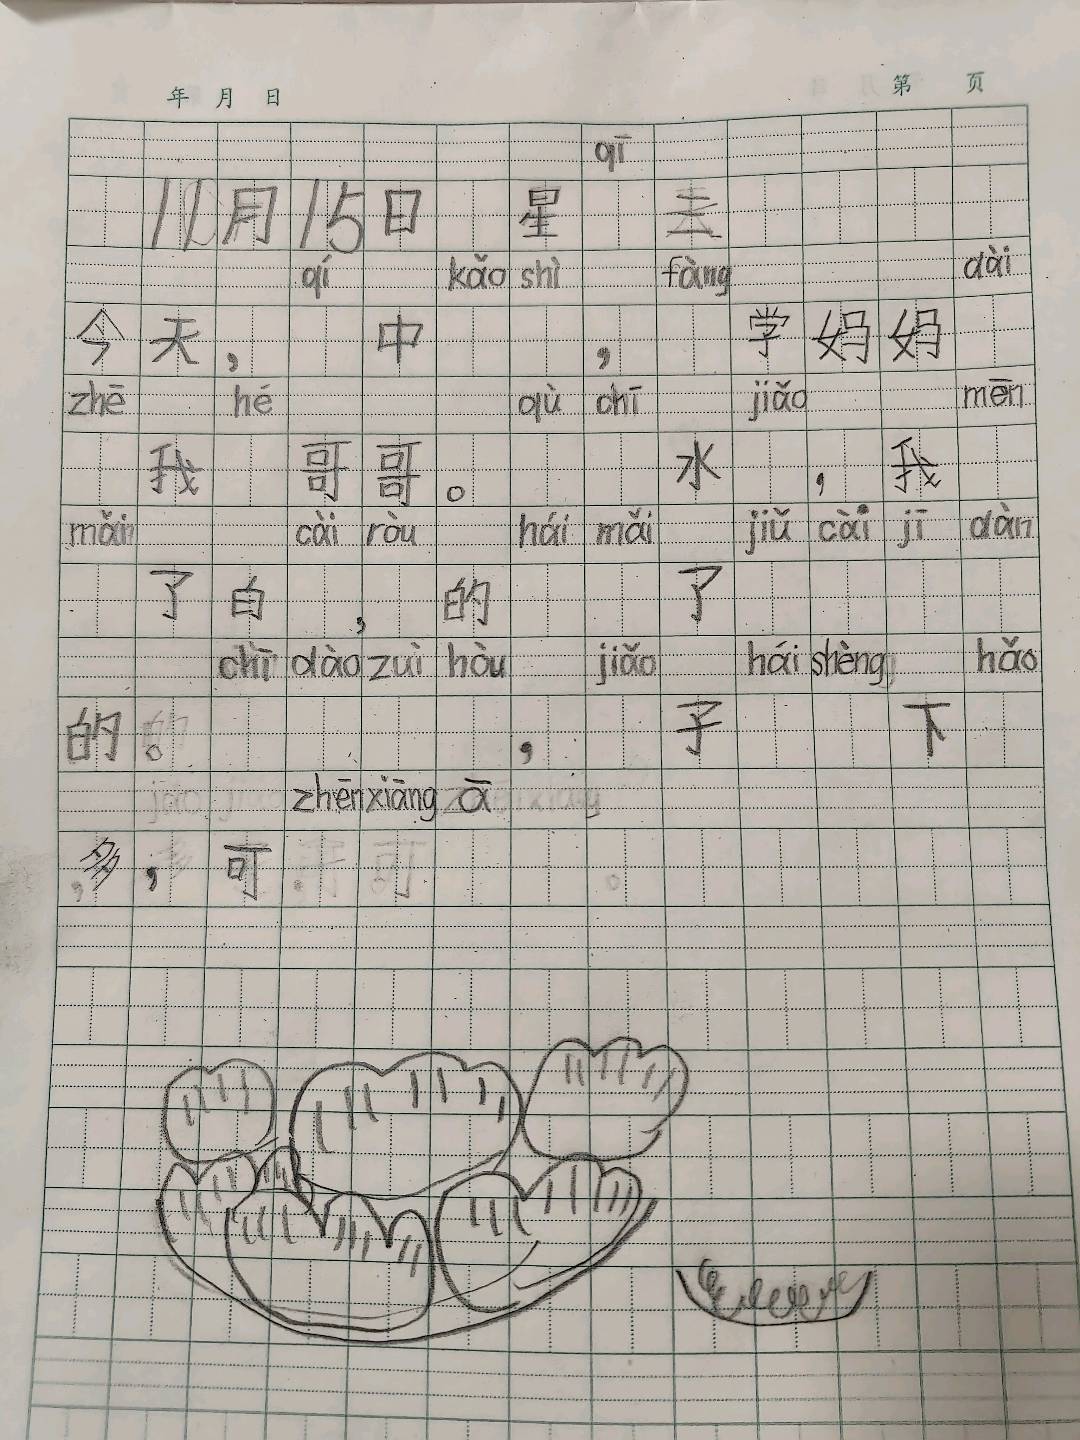 年 月 日 第 页
qī
11月15日 星 天
qí kǎo shì fàng dài
今天， 中 ， 学妈妈
zhē hé qù chī jiǎo mēn
我 哥哥。 水 ，我
mǎi cài ròu hái mǎi jiǔ cài jī dàn
了白 ， 的 了
chī dào zuì hòu jiǎo hái shèng hǎo
的。 ， 子 下
zhēn xiāng ā
多， 可